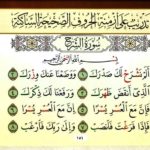 تدريب على أزمنة الحروف الصحيحة الساكنة
سورة الشرح
بسم الله الرحمن الرحيم
ألم نشرح لك صدرك ووضعنا عنك وزرك
الذي أنقض ظهرك ورفعنا لك ذكرك
فإن مع العسر يسرا إن مع العسر يسرا
فإذا فرغت فانصب وإلى ربك فارغب